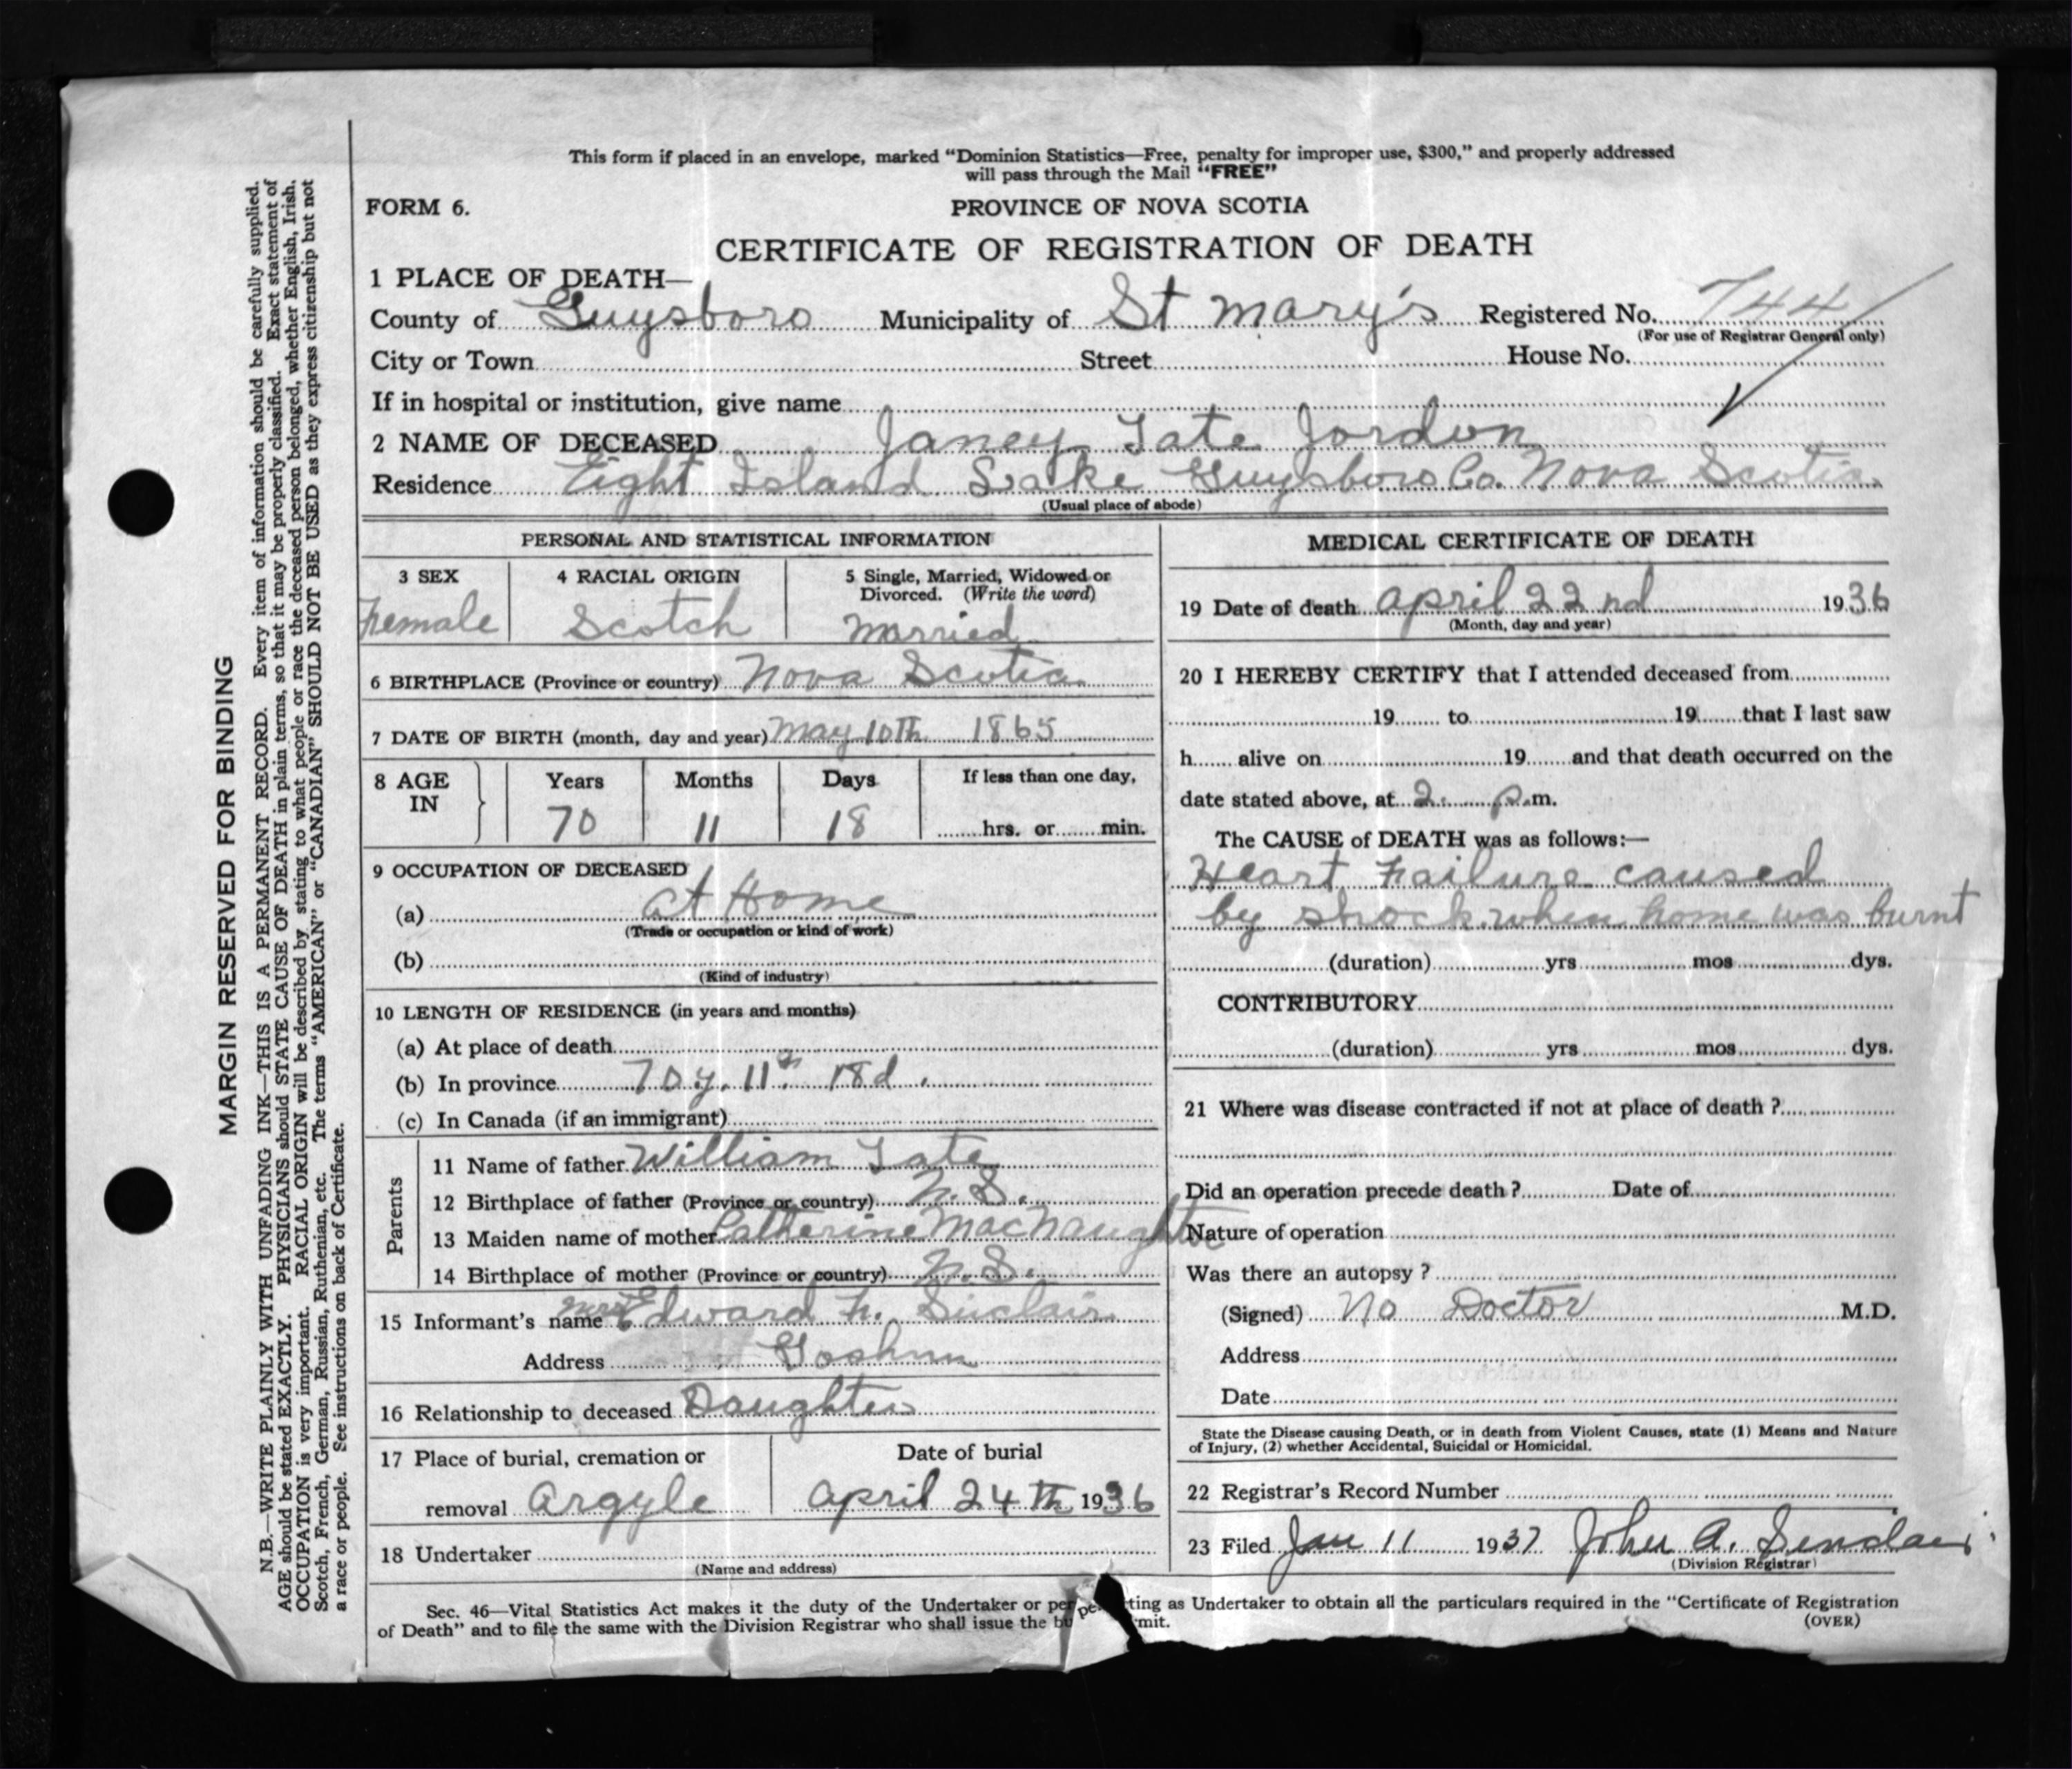 This form if placed in an envelope, marked “Dominion Statistics—Free, penalty for improper use, $300,” and properly addressed
will pass through the Mail “FREE”
FORM 6.
PROVINCE OF NOVA SCOTIA
CERTIFICATE OF REGISTRATION OF DEATH
1 PLACE OF DEATH—
County of Guysboro Municipality of St Mary's Registered No. 744
(For use of Registrar General only)
City or Town Street House No.
If in hospital or institution, give name
2 NAME OF DECEASED Janey Tate Jordon
Residence Eight Island Lake Guysboro Co. Nova Scotia.
(Usual place of abode)
PERSONAL AND STATISTICAL INFORMATION
3 SEX 4 RACIAL ORIGIN 5 Single, Married, Widowed or
Divorced. (Write the word)
Female Scotch Married
6 BIRTHPLACE (Province or country) Nova Scotia
7 DATE OF BIRTH (month, day and year) May 10th 1865
8 AGE Years Months Days If less than one day,
IN
70 11 18 hrs. or min.
9 OCCUPATION OF DECEASED
(a) at Home
(Trade or occupation or kind of work)
(b)
(Kind of industry)
10 LENGTH OF RESIDENCE (in years and months)
(a) At place of death
(b) In province 70 y. 11 18 d.
(c) In Canada (if an immigrant)
Parents
11 Name of father William Tate
12 Birthplace of father (Province or country) N.S.
13 Maiden name of mother Catherine MacNaughton
14 Birthplace of mother (Province or country) N.S.
15 Informant's name Mrs Edward H. Sinclair
Address Goshen
16 Relationship to deceased Daughter
17 Place of burial, cremation or Date of burial
removal Argyle April 24th 1936
18 Undertaker
(Name and address)
MEDICAL CERTIFICATE OF DEATH
19 Date of death April 22nd 1936
(Month, day and year)
20 I HEREBY CERTIFY that I attended deceased from
19 to 19 that I last saw
h alive on 19 and that death occurred on the
date stated above, at 2 p.m.
The CAUSE of DEATH was as follows:—
Heart Failure caused
by shock when home was burnt
(duration) yrs mos dys.
CONTRIBUTORY
(duration) yrs mos dys.
21 Where was disease contracted if not at place of death ?
Did an operation precede death ? Date of
Nature of operation
Was there an autopsy ?
(Signed) No Doctor M.D.
Address
Date
State the Disease causing Death, or in death from Violent Causes, state (1) Means and Nature
of Injury, (2) whether Accidental, Suicidal or Homicidal.
22 Registrar's Record Number
23 Filed Jan 11 1937 John A. Sinclair
(Division Registrar)
Sec. 46—Vital Statistics Act makes it the duty of the Undertaker or per ting as Undertaker to obtain all the particulars required in the “Certificate of Registration
of Death” and to file the same with the Division Registrar who shall issue the bu mit.
(OVER)
MARGIN RESERVED FOR BINDING
N.B.—WRITE PLAINLY WITH UNFADING INK—THIS IS A PERMANENT RECORD. Every item of information should be carefully supplied.
AGE should be stated EXACTLY. PHYSICIANS should STATE CAUSE OF DEATH in plain terms, so that it may be properly classified. Exact statement of
OCCUPATION is very important. RACIAL ORIGIN will be described by stating to what people or race the deceased person belonged, whether English, Irish,
Scotch, French, German, Russian, Ruthenian, etc. The terms “AMERICAN” or “CANADIAN” SHOULD NOT BE USED as they express citizenship but not
a race or people. See instructions on back of Certificate.